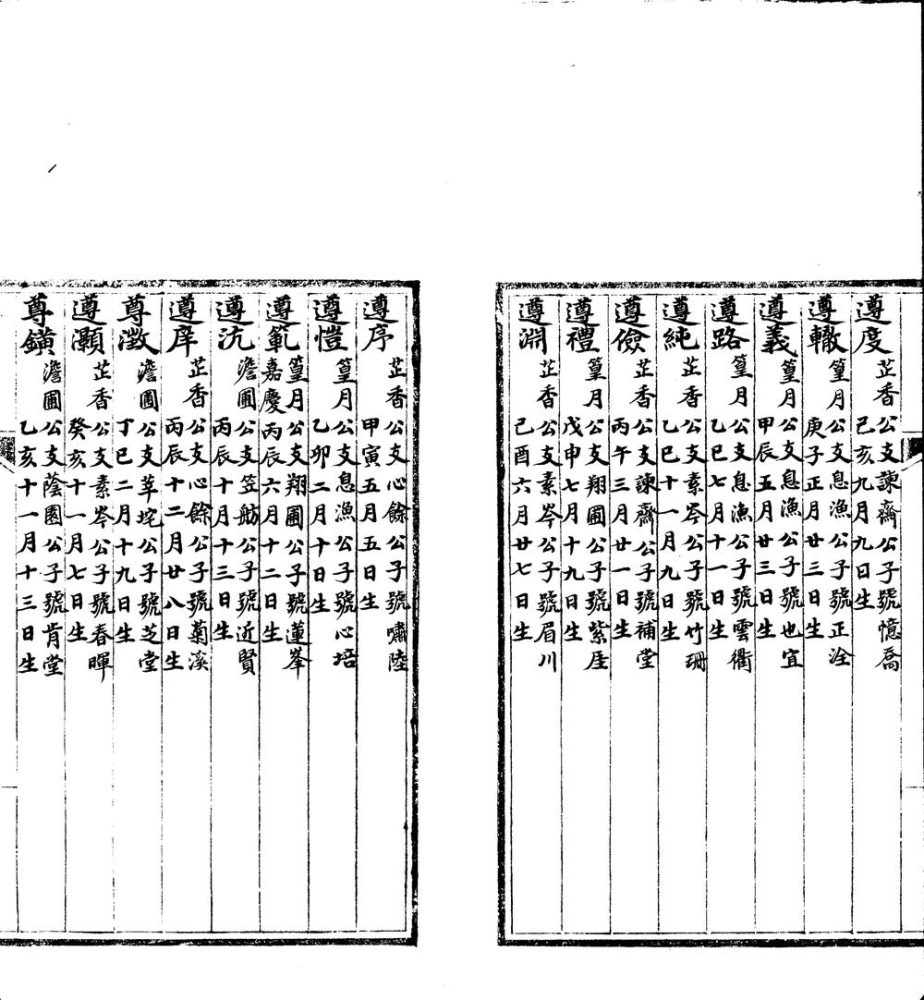 遵度 芷香公支諫齋公子號憶喬
己亥九月九日生
遵轍 篁月公支息漁公子號正淦
庚子正月廿三日生
遵義 篁月公支息漁公子號也宜
甲辰五月廿三日生
遵路 篁月公支息漁公子號雲衢
乙巳七月十一日生
遵純 芷香公支素岑公子號竹珊
乙巳十一月九日生
遵儉 芷香公支諫齋公子號補堂
丙午三月廿一日生
遵禮 篁月公支翔圃公子號紫厓
戊申七月十九日生
遵淵 芷香公支素岑公子號眉川
己酉六月廿七日生
遵序 芷香公支心餘公子號嘯陸
甲寅五月五日生
遵愷 篁月公支息漁公子號心培
乙卯二月十日生
遵範 篁月公支翔圃公子號蓮峯
嘉慶丙辰六月十二日生
遵沆 澹圃公支笠舫公子號近賢
丙辰十月十三日生
遵庠 芷香公支心餘公子號菊溪
丙辰十二月廿八日生
尊澂 澹圃公支莘垞公子號芝堂
丁巳二月十九日生
遵灝 芷香公支素岑公子號春暉
癸亥十一月七日生
尊鐄 澹圃公支蔭園公子號肯堂
乙亥十一月十三日生